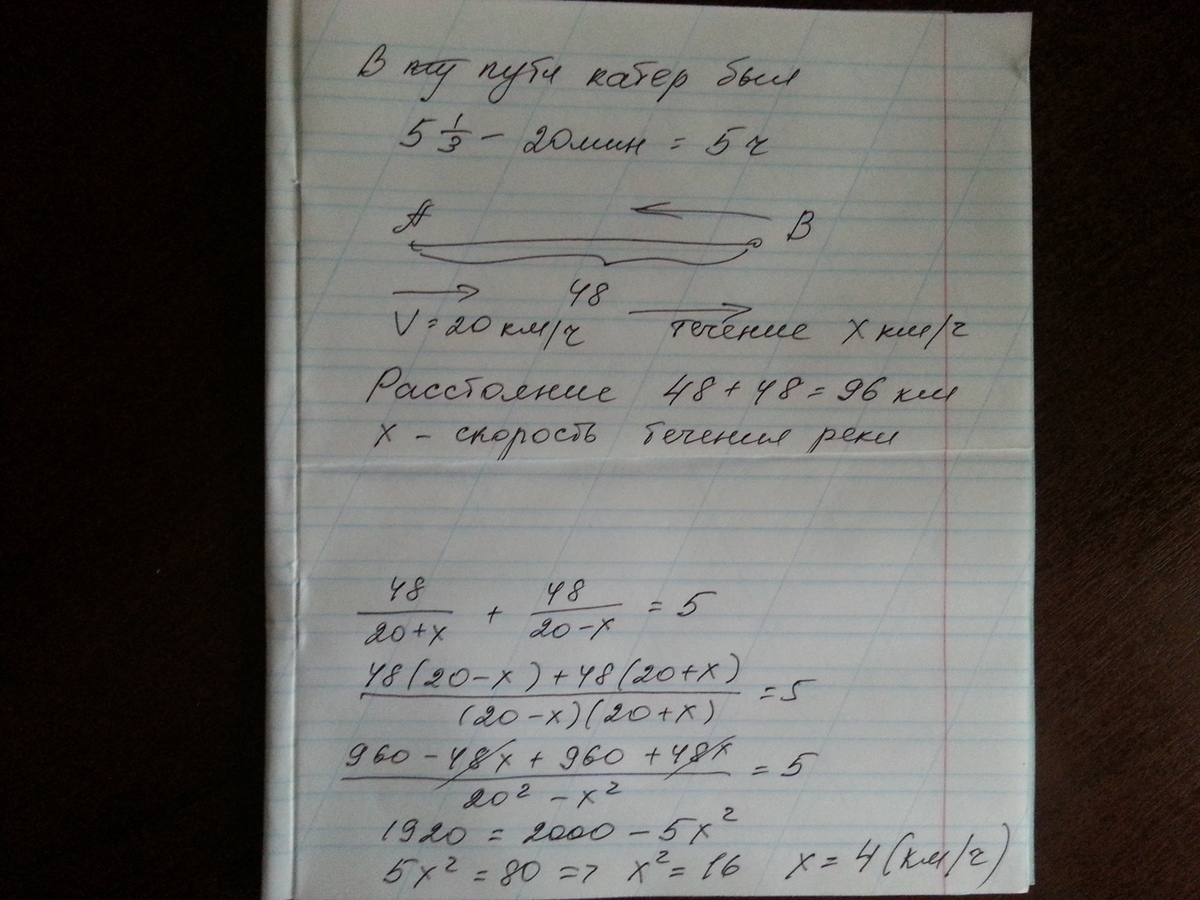 В пути катер был
5 1/3 - 20 мин = 5 ч
A B
48
V = 20 км/ч течение x км/ч
Расстояние 48 + 48 = 96 км
x - скорость течения реки
48/(20+x) + 48/(20-x) = 5
(48(20-x) + 48(20+x))/((20-x)(20+x)) = 5
(960 - 48x + 960 + 48x)/(20² - x²) = 5
1920 = 2000 - 5x²
5x² = 80 => x² = 16 x = 4 (км/ч)